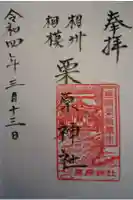 奉拝
相州
相模
栗原神社
令和四年三月十三日